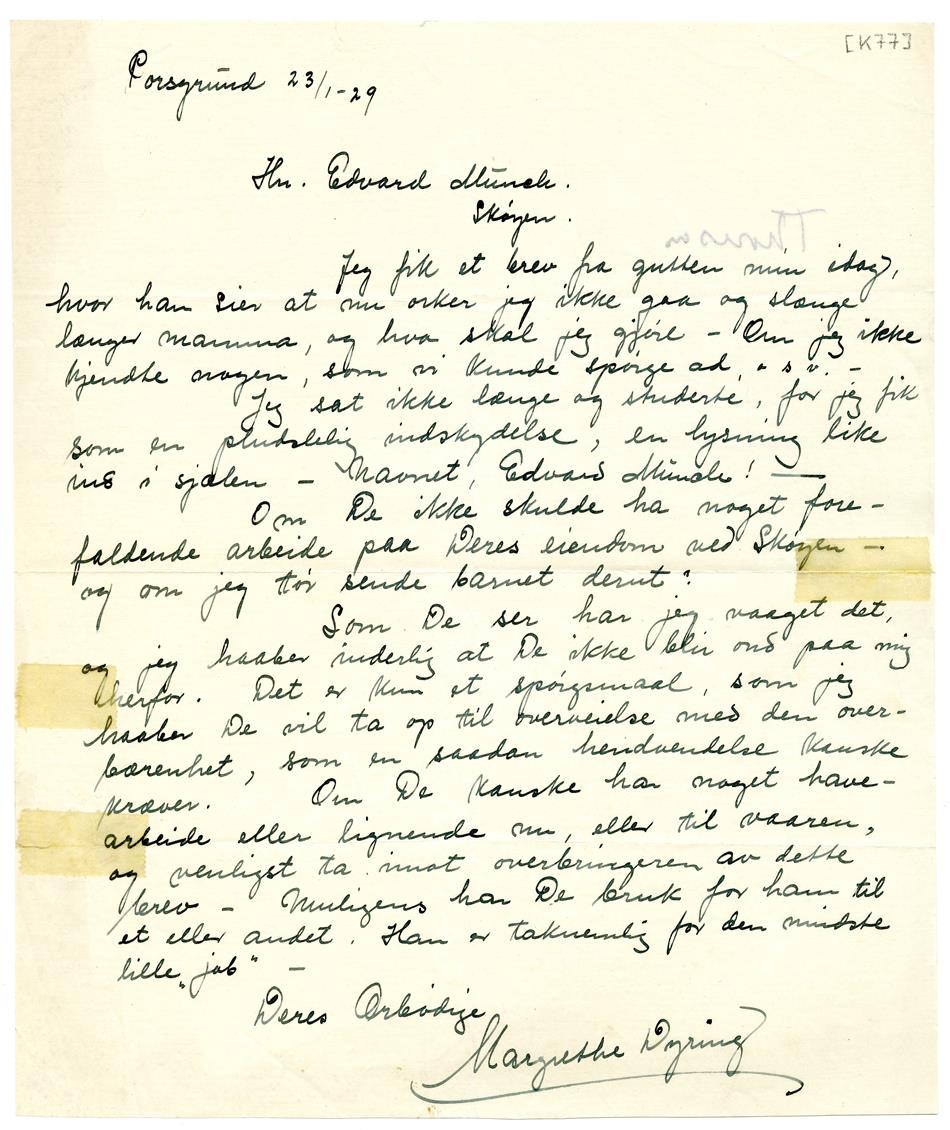 [K77]
Porsgrund 23/1-29
Hr. Edvard Munch.
Skøyen.
Jeg fik et brev fra gutten min idag,
hvor han sier at nu orker jeg ikke gaa og slænge
længer mamma, og hva skal jeg gjøre – Om jeg ikke
kjendte nogen, som vi kunde spørge ad, o s v. –
Jeg sat ikke længe og studerte, for jeg fik
som en pludslelig indskydelse, en lysning like
ind i sjælen – Navnet, Edvard Munch! —
Om De ikke skulde ha noget fore-
faldende arbeide paa Deres eiendom ved Skøyen –
og om jeg tør sende barnet derut?
Som De ser har jeg vaaget det,
og jeg haaber inderlig at De ikke blir ond paa mig
herfor. Det er kun et spørgsmaal, som jeg
haaber De vil ta op til overveielse med den over-
bærenhet, som en saadan hendvendelse kanske
kræver. Om De kanske har noget have-
arbeide eller lignende nu, eller til vaaren,
og venligst ta imot overbringeren av dette
brev – Muligens har De bruk for ham til
et eller andet. Han er taknemlig for den mindste
lille „job" –
Deres Ærbødige
Margrethe Dyring